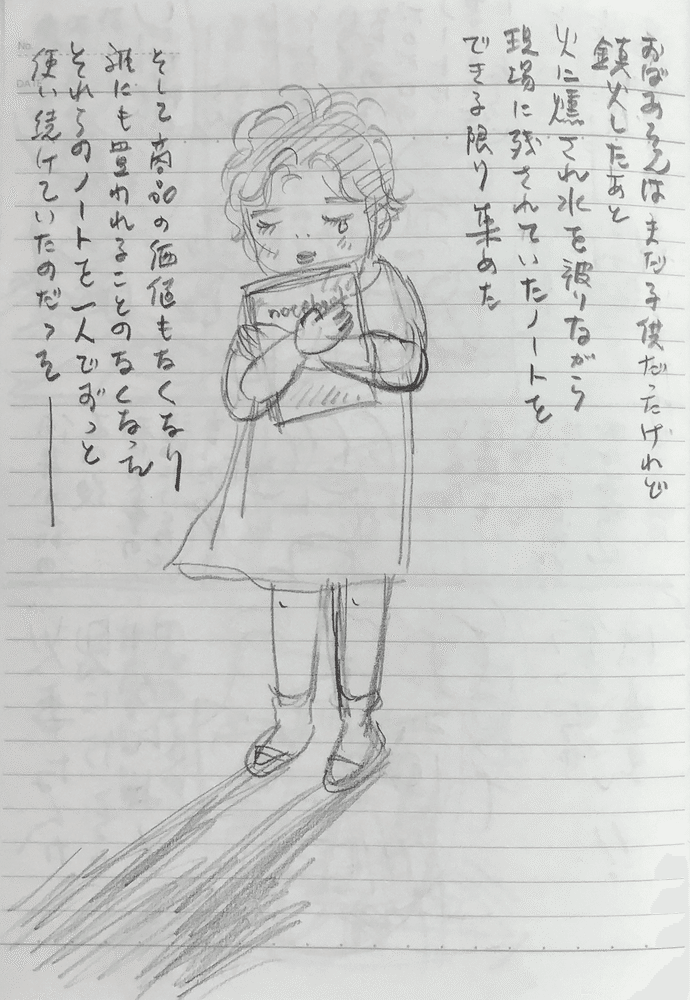 おばあさんはまだ子供だったけれど
鎮火したあと
火に燻され水を被りながら
現場に残されていたノートを
できる限り集めた
そして商品の価値もなくなり
誰にも買われることのなくなった
それらのノートを一人でずっと
使い続けていたのだった――
notebook
No.
DATE